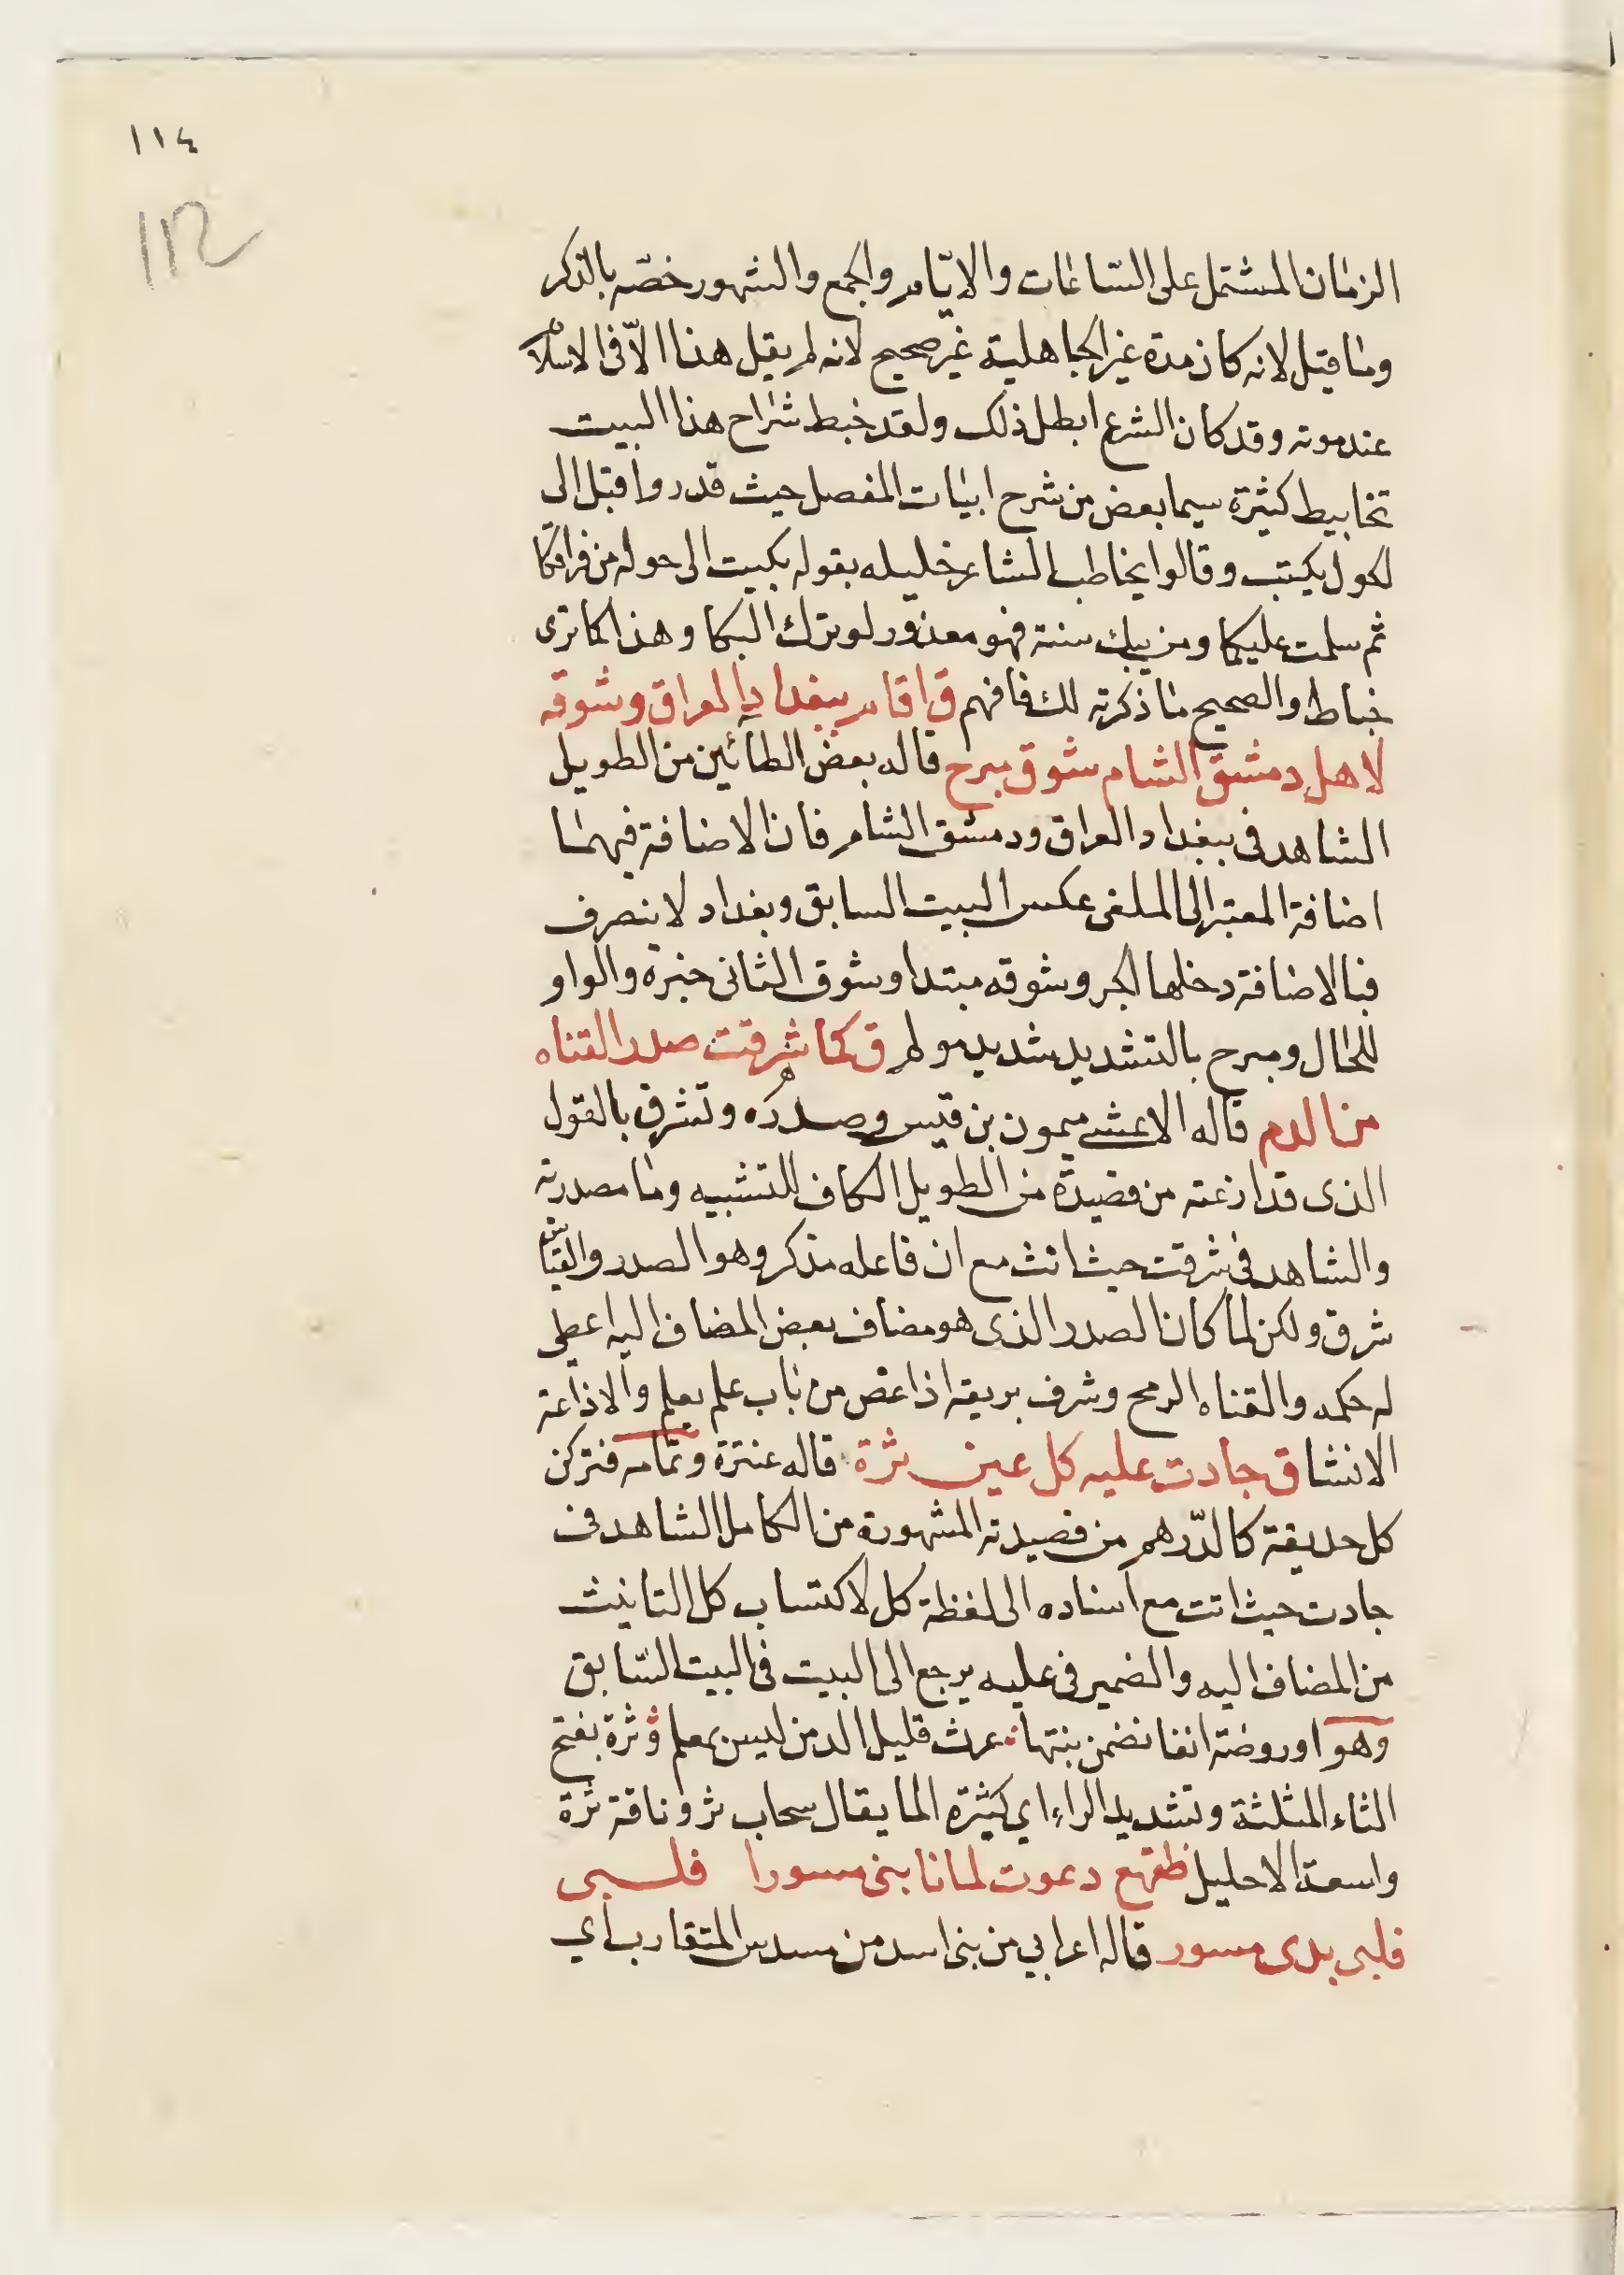 ١١٤
١١٢
الزمان المشتمل على الساعات والايّام والجمع والشهور خصّه بالذكر
وما قيل لانه كان مدة غير الجاهلية غير صحيح لانه لم يقل هذا الّا فى الاسلام
عند موته وقد كان الشرع ابطل ذلك ولقد خبط شراح هذا البيت
تخابيط كثيرة سيما بعض من شرح ابيات المفصل حيث قدروا قبل الى
لحول بكيتب وقالوا يخاطب الشاعر خليله بقوله بكيت الى حوله من فراقكما
ثم سلمت عليكما ومن يبك سنة فهو معذور لو ترك البكا وهذا كما ترى
خباط والصحيح ما ذكرته لك فافهم ق اقام ببغداد العراق وشوقه
لاهل دمشق الشام شوق مبرح قاله بعض الطائين من الطويل
الشاهد فى ببغداد العراق ودمشق الشام فان الاضافة فيهما
اضافة المعتبر الى الملغى عكس البيت السابق وبغداد لا ينصرف
فبالاضافة دخلها الجر وشوقه مبتدا وشوق الثانى خبره والواو
للحال ومبرح بالتشديد شديد مولم ق كما شرقت صدر القناه
من الدم قاله الاعشى ميمون بن قيس وصدره وتشرق بالقول
الذى قد اذعته من قصيدة من الطويل الكاف للتشبيه وما مصدرية
والشاهد فى شرقت حيث انث مع ان فاعله مذكر وهو الصدر والقياس
شرق ولكن لما كان الصدر الذى هو مضاف بعض المضاف اليه اعطى
له حكمه والقناه الرمح وشرف بريقه اذا غص من باب علم يعلم والاذاعة
الانشا ق جادت عليه كل عين ثرة قاله عنترة وتمامه فتركن
كل حديقة كالدّرهم من قصيدته المشهورة من الكامل الشاهد فى
جادت حيث انث مع اسناده الى لفظة كل لاكتساب كل التانيث
من المضاف اليه والضمير فى عليه يرجع الى البيت فى البيت السّابق
وهو اوروضة انفا تضمن بنتها غيث قليل الدمن ليس بمعلم وثرة بفتح
الثاء المثلثة وتشديد الراء اي كثيرة الما يقال سحاب ثر وناقة ثرة
واسعة الاحليل ظقهع دعوت لما نابنى مسورا فلبى
فلبى يدى مسور قاله اعرابي من بنى اسد من مسدس المتقارب اي